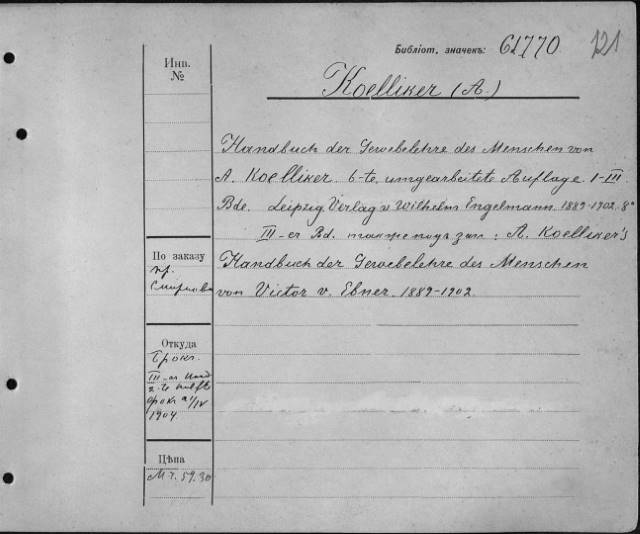 Библіот. значекъ: 61770. 121
Инв.
№
Koelliker (A.)
Handbuch der Gewebelehre des Menschen von
A. Koelliker. 6-te, umgearbeitete Auflage. I-III
Bde. Leipzig. Verlag v. Wilhelm Engelmann. 1889-1902. 8°
III-er Bd. также подъ заг: A. Koelliker's
Handbuch der Gewebelehre des Menschen
von Victor v. Ebner. 1889-1902.
По заказу
пр.
Смирнова
Откуда
Брокг.
III-er
2-te
1904.
Цѣна
59.30